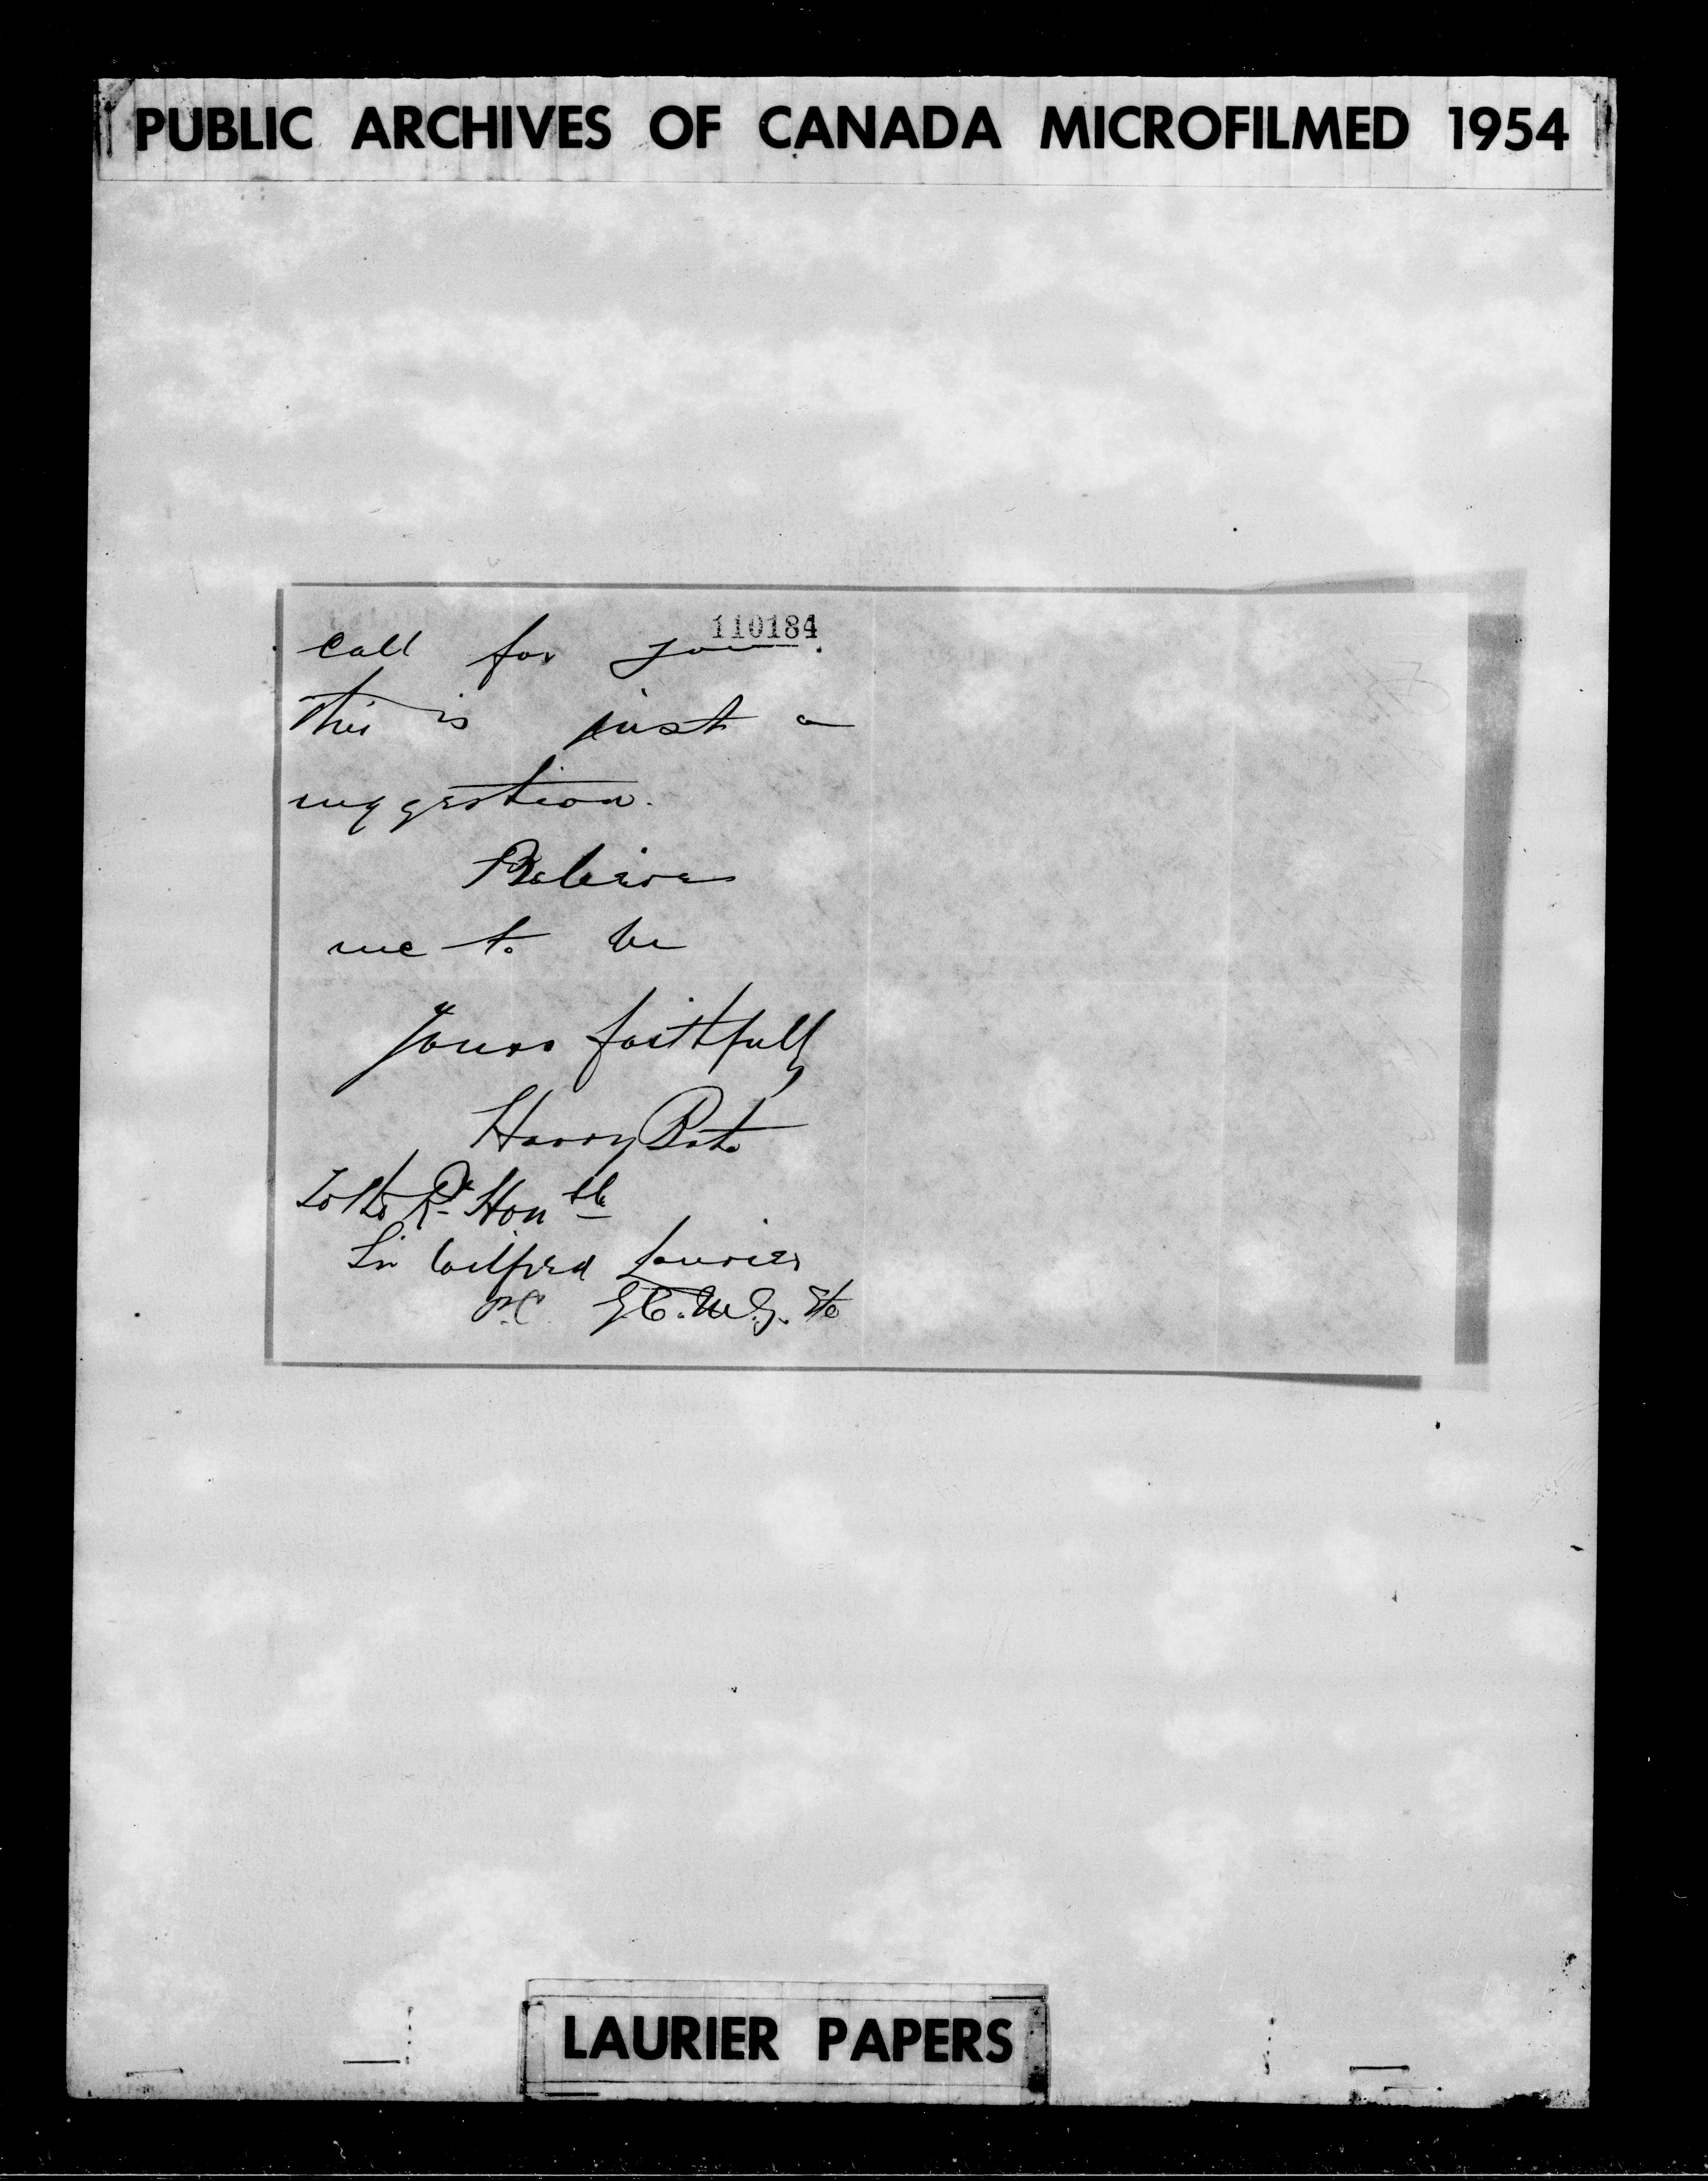 PUBLIC ARCHIVES OF CANADA MICROFILMED 1954
110184
call for you.
This is just a
suggestion.
Believe
me to be
Yours faithfully
Harry
To the Rt Honble
Sir Wilfred Laurier
P.C. G.C.M.G. Etc
LAURIER PAPERS